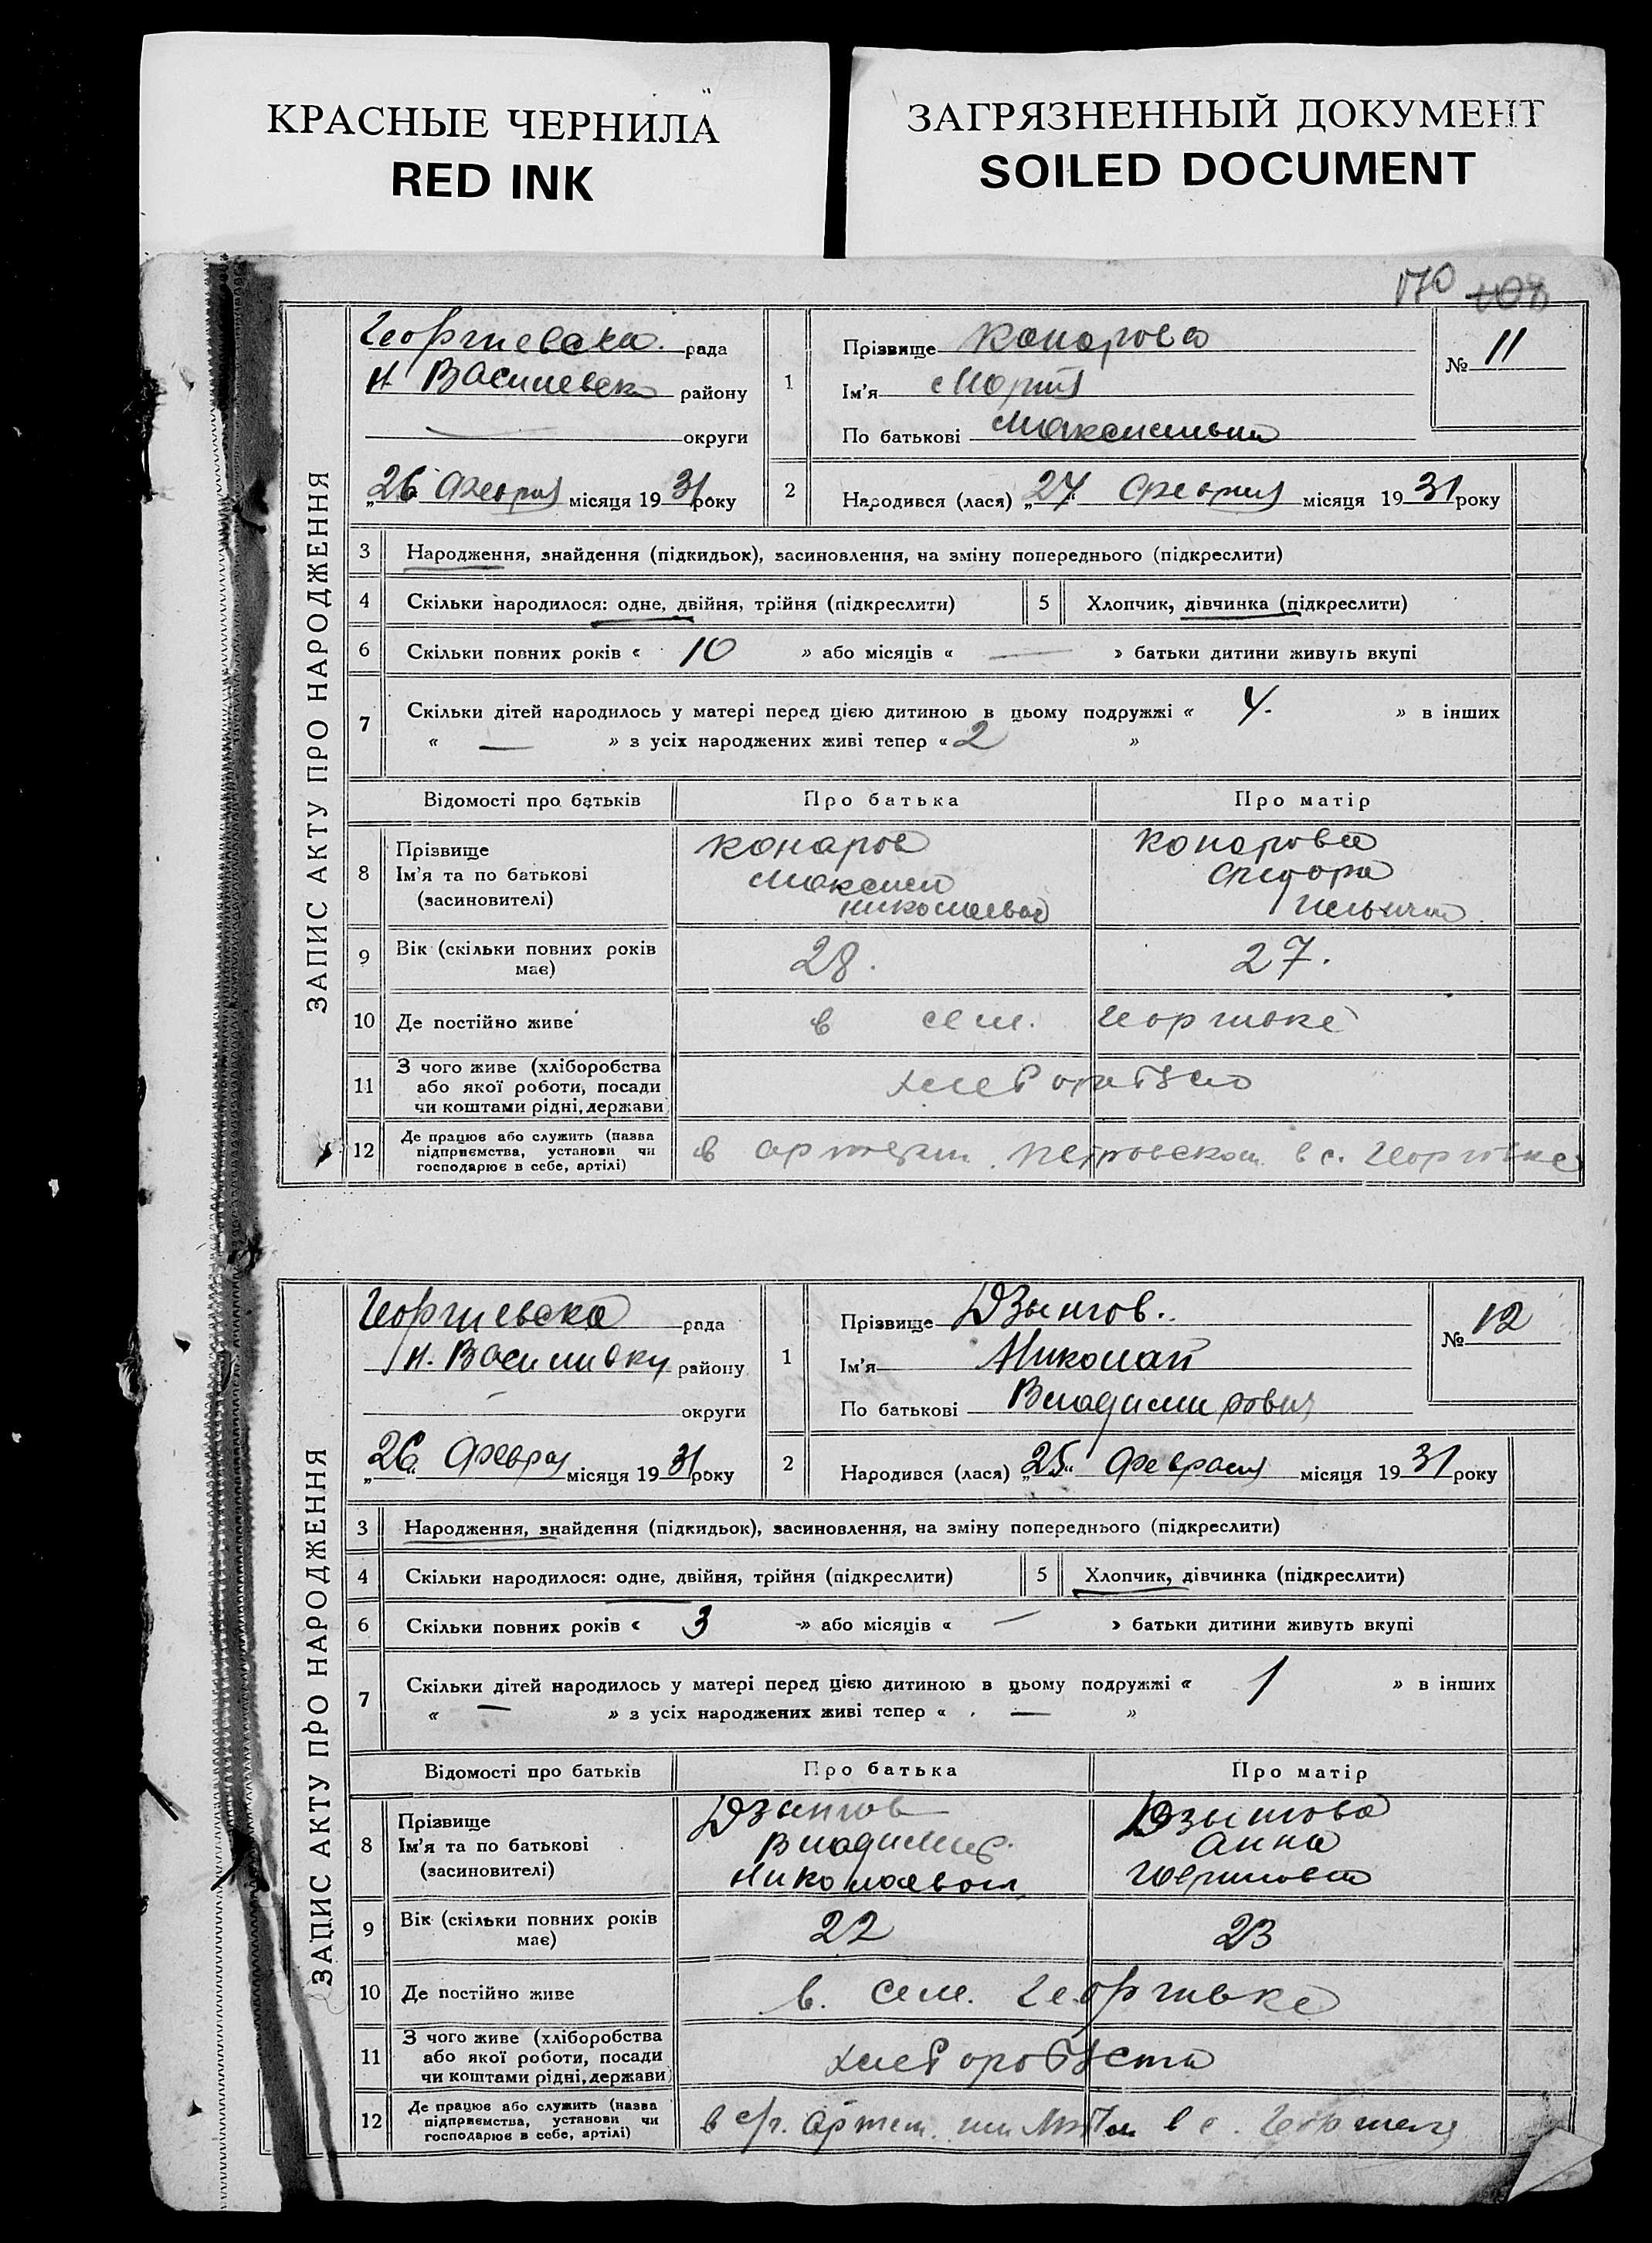 КРАСНЫЕ ЧЕРНИЛА
RED INK
ЗАГРЯЗНЕННЫЙ ДОКУМЕНТ
SOILED DOCUMENT
170
ЗАПИС АКТУ ПРО НАРОДЖЕННЯ
Георгиевска рада
Н Василевск району
округи
„26“ місяця 1931 року
1
Прізвище Конарова
Ім'я Мария
По батькові
№ 11
2
Народився (лася) „24“ місяця 1931 року
3 Народження, знайдення (підкидьок), засиновлення, на зміну попереднього (підкреслити)
4 Скільки народилося: одне, двійня, трійня (підкреслити)
5 Хлопчик, дівчинка (підкреслити)
6 Скільки повних років « 10 » або місяців « — » батьки дитини живуть вкупі
7 Скільки дітей народилось у матері перед цією дитиною в цьому подружжі « 4. » в інших
« — » з усіх народжених живі тепер « 2 »
Відомості про батьків Про батька Про матір
8 Прізвище
Ім'я та по батькові
(засновителі)
Конаров
Максим
Николаевич
Конарова
9 Вік (скільки повних років
має)
28.
27.
10 Де постійно живе в сел. Георгивке
11 З чого живе (хліборобства
або якої роботи, посади
чи коштами рідні, держави
12 Де працює або служить (назва
підприємства, установи чи
господарює в себе, артілі)
в Петровском в с. Георгивке
ЗАПИС АКТУ ПРО НАРОДЖЕННЯ
Георгиевска рада
Н. Василивку району
округи
„26“ Февра місяця 1931 року
1
Прізвище Дзынгов.
Ім'я Николай
По батькові Владимирович
№ 12
2
Народився (лася) „25“ Февраля місяця 1931 року
3 Народження, знайдення (підкидьок), засиновлення, на зміну попереднього (підкреслити)
4 Скільки народилося: одне, двійня, трійня (підкреслити)
5 Хлопчик, дівчинка (підкреслити)
6 Скільки повних років « 3 » або місяців « — » батьки дитини живуть вкупі
7 Скільки дітей народилось у матері перед цією дитиною в цьому подружжі « 1 » в інших
« — » з усіх народжених живі тепер « — »
Відомості про батьків Про батька Про матір
8 Прізвище
Ім'я та по батькові
(засиновителі)
Дзынгов
Владимир
Николаевич
Дзынгова
Анна
9 Вік (скільки повних років
має)
22
23
10 Де постійно живе в. сел. Георгивке
11 З чого живе (хліборобства
або якої роботи, посади
чи коштами рідні, держави
12 Де працює або служить (назва
підприємства, установи чи
господарює в себе, артілі)
в с/г. артел. в с.